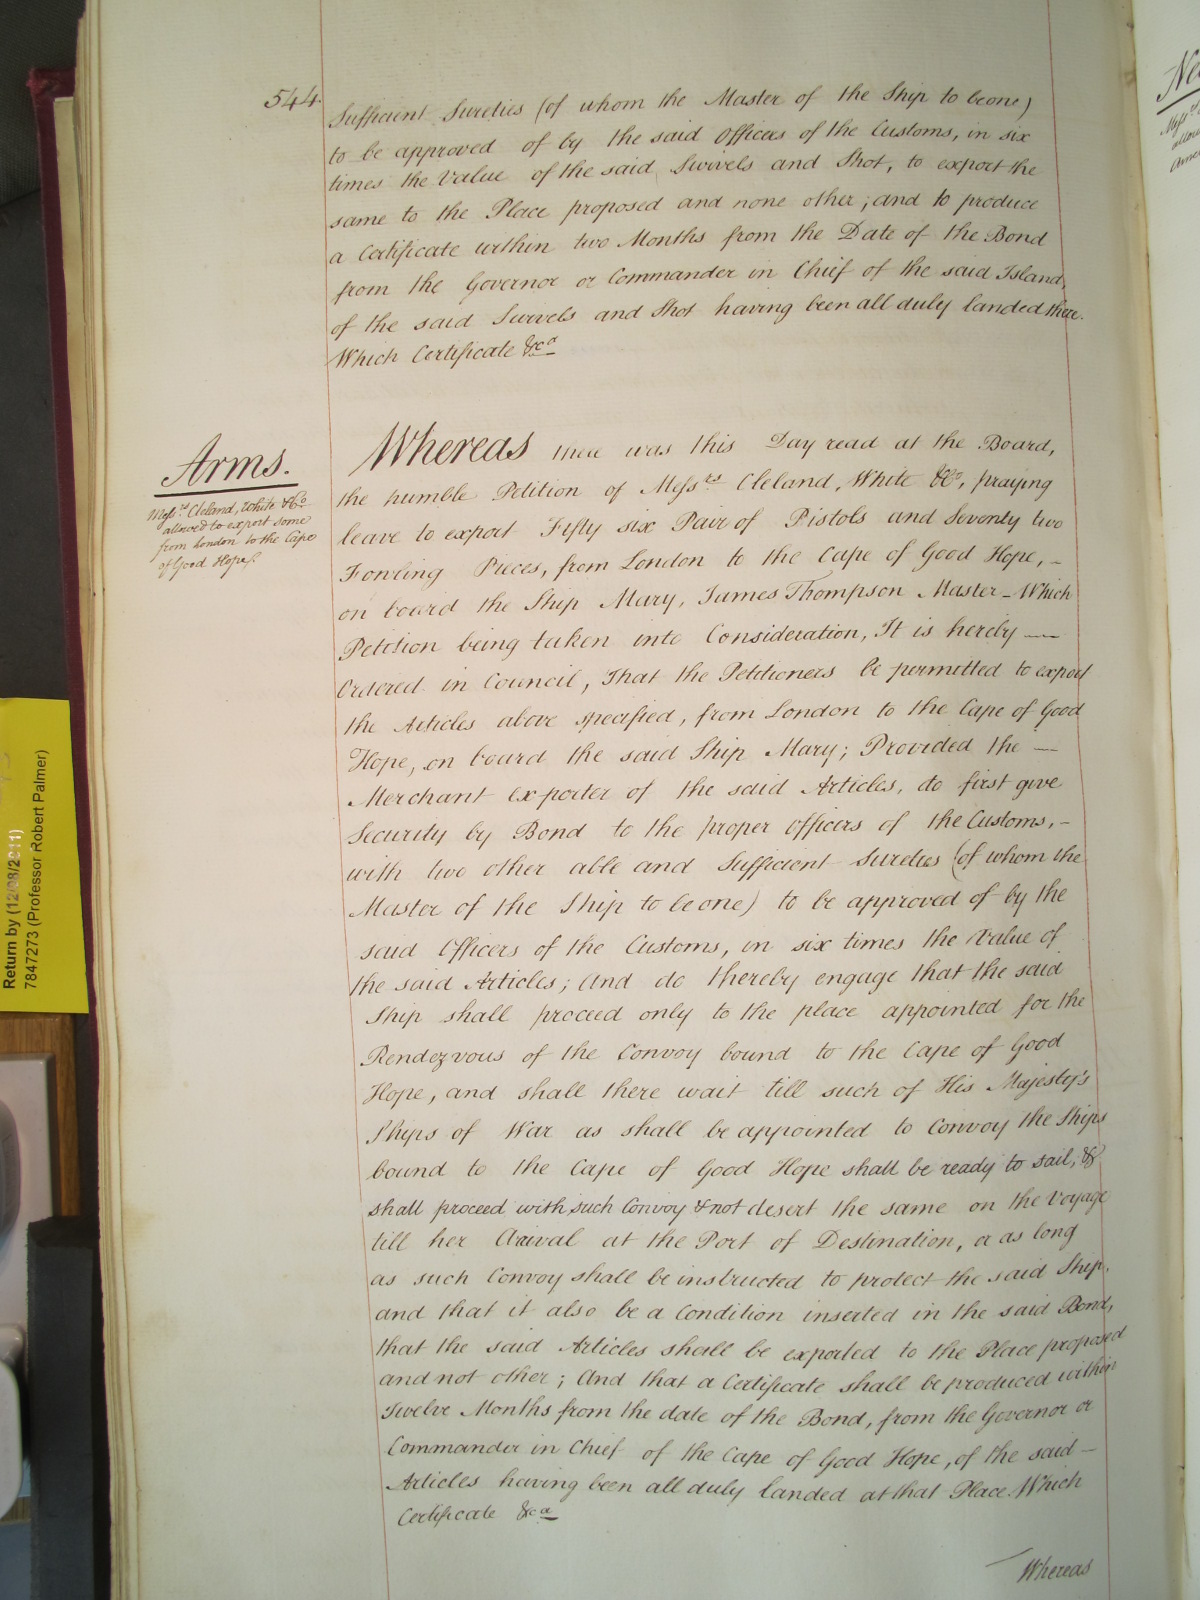 544.
Sufficient Sureties (of whom the Master of the Ship to be one)
to be approved of by the said Officers of the Customs, in six
times the Value of the said Swivels and Shot, to export the
same to the Place proposed and none other; and to produce
a Certificate within two Months from the Date of the Bond
from the Governor or Commander in Chief of the said Island,
of the said Swivels and Shot having been all duly landed there.
Which Certificate &ca
Arms.
Messrs Cleland, White &Co
allowed to export some
from London to the Cape
of Good Hope.
Whereas there was this Day read at the Board,
the humble Petition of Messrs Cleland, White &Co, praying
leave to export Fifty six Pair of Pistols and Seventy two
Fowling Pieces, from London to the Cape of Good Hope, -
on board the Ship Mary, James Thompson Master - Which
Petition being taken into Consideration, It is hereby —
Ordered in Council, That the Petitioners be permitted to export
the Articles above specified, from London to the Cape of Good
Hope, on board the said Ship Mary; Provided the —
Merchant exporter of the said Articles, do first give
Security by Bond to the proper Officers of the Customs, -
with two other able and Sufficient Sureties (of whom the
Master of the Ship to be one) to be approved of by the
said Officers of the Customs, in six times the Value of
the said Articles; And do thereby engage that the said
Ship shall proceed only to the place appointed for the
Rendezvous of the Convoy bound to the Cape of Good
Hope, and shall there wait till such of His Majesty's
Ships of War as shall be appointed to Convoy the Ships
bound to the Cape of Good Hope shall be ready to sail, &
shall proceed with such Convoy & not desert the same on the Voyage
till her Arival at the Port of Destination, or as long
as such Convoy shall be instructed to protect the said Ship.
and that it also be a Condition inserted in the said Bond,
that the said Articles shall be exported to the Place proposed
and not other; And that a Certificate shall be produced within
Twelve Months from the date of the Bond, from the Governor or
Commander in Chief of the Cape of Good Hope, of the said -
Articles having been all duly landed at that Place. Which
Certificate &ca
Whereas
Return by (12/08/2011)
7847273 (Professor Robert Palmer)